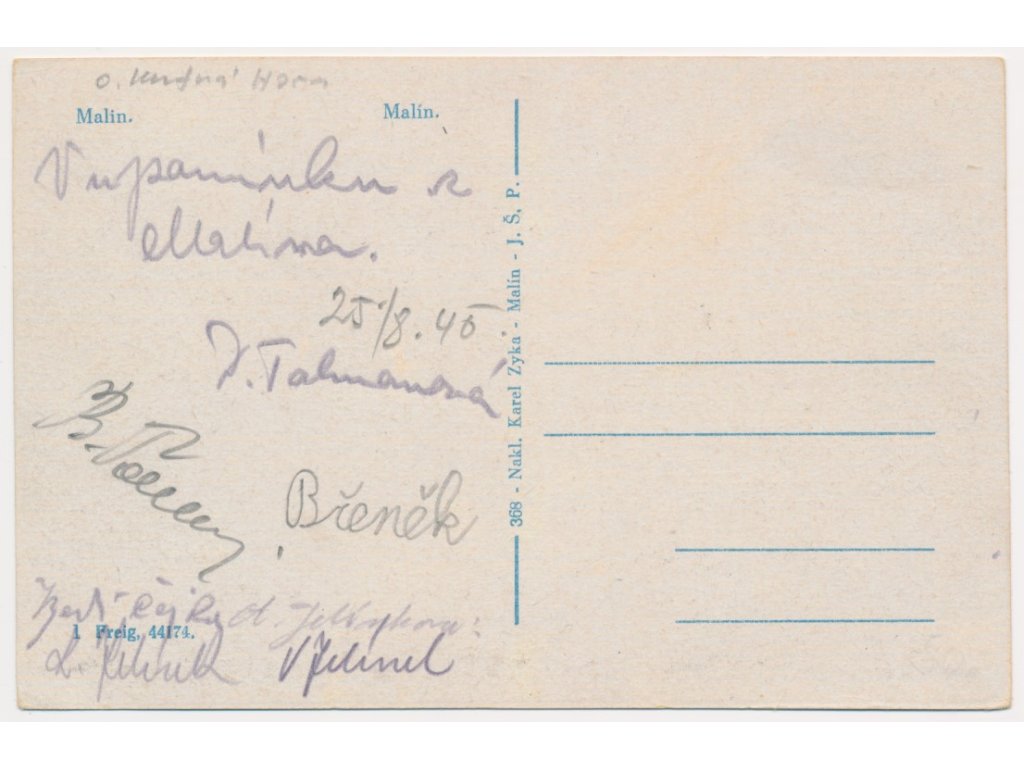 o. Kutná Hora
Malin. Malín.
Vzpomínku z
Malína.
25/8. 45.
Talmanová
B.
Břeněk
1 Freig, 44174.
L. Jelínek V Jelínek
368 - Nakl. Karel Zyka - Malín - J. Š. P.